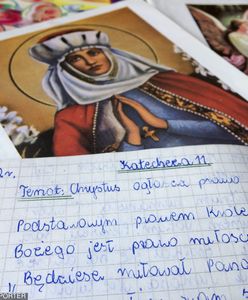 r.
Katecheza 11
Temat: Chrystus ogłasza prawo
Podstawowym prawem Króle
Bożego jest prawo miłośc
Będziesz miłował Pana
PORTER